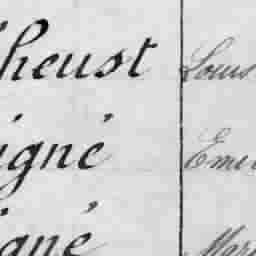 heust Louis
igné Eme
igné Mar